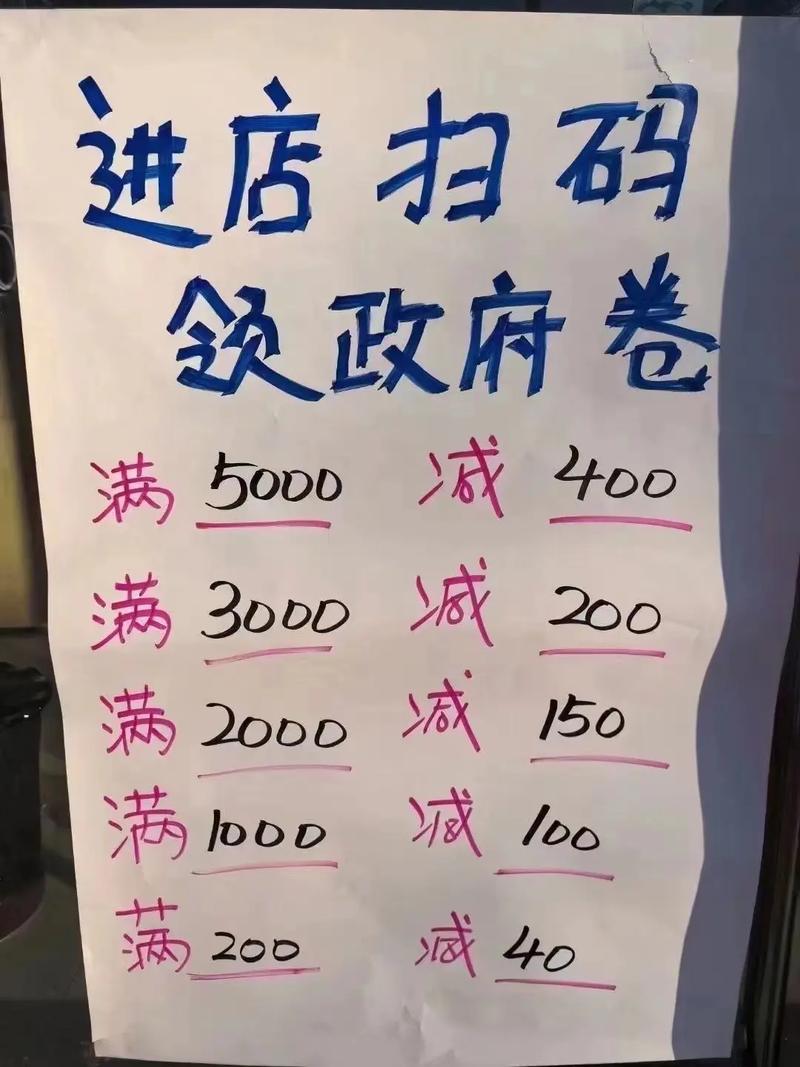 进店扫码
领政府卷
满 5000 减 400
满 3000 减 200
满 2000 减 150
满 1000 减 100
满 200 减 40